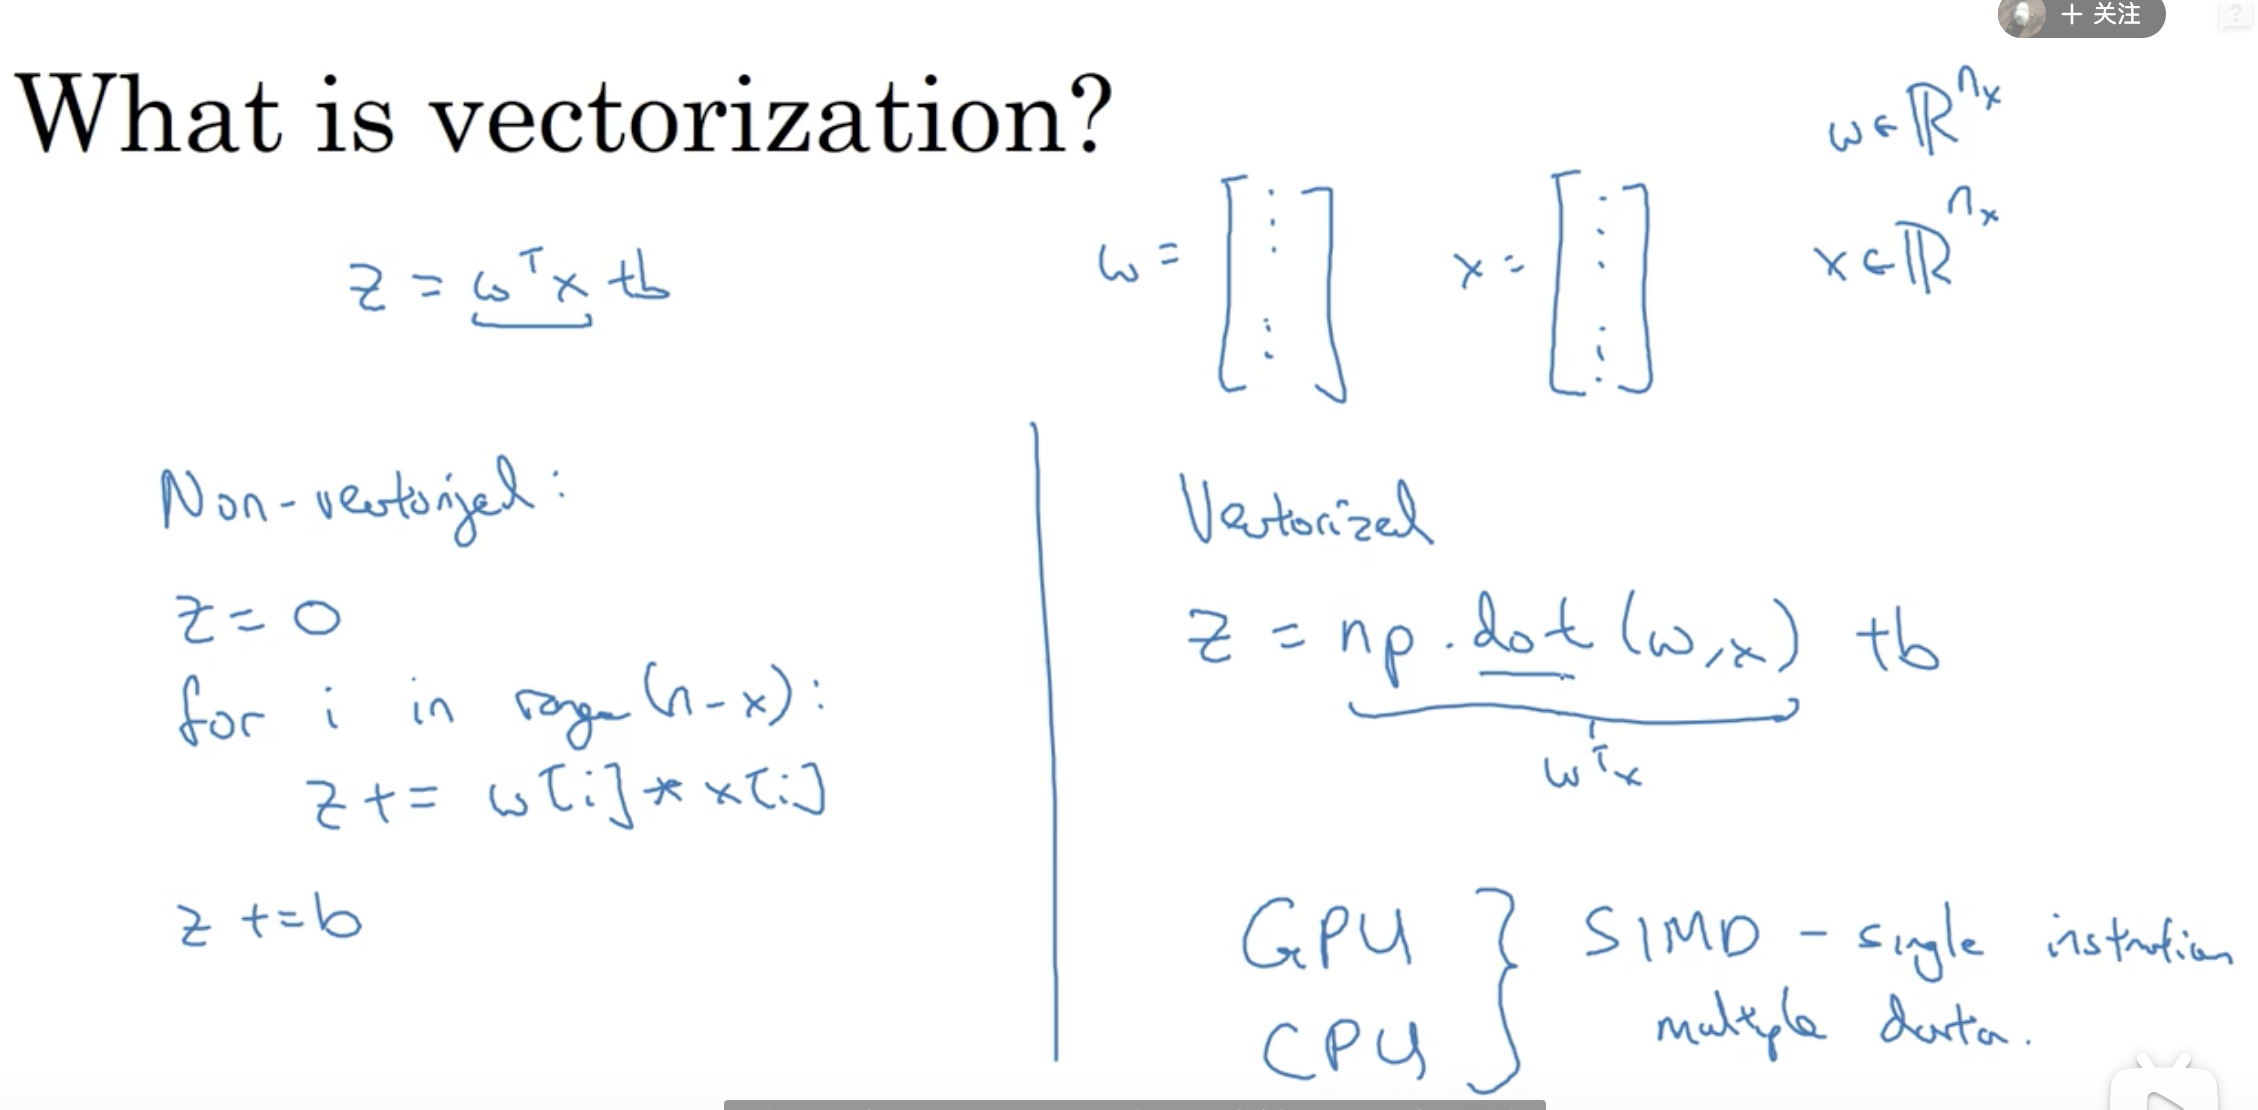 + 关注
What is vectorization?
z = wᵀx + b
w = [⋮]
x = [⋮]
w ∈ ℝⁿˣ
x ∈ ℝⁿˣ
Non-vectorized:
z = 0
for i in range(n-x):
z += w[i] * x[i]
z += b
Vectorized
z = np.dot(w,x) + b
wᵀx
GPU
CPU
} SIMD - single instruction
multiple data.